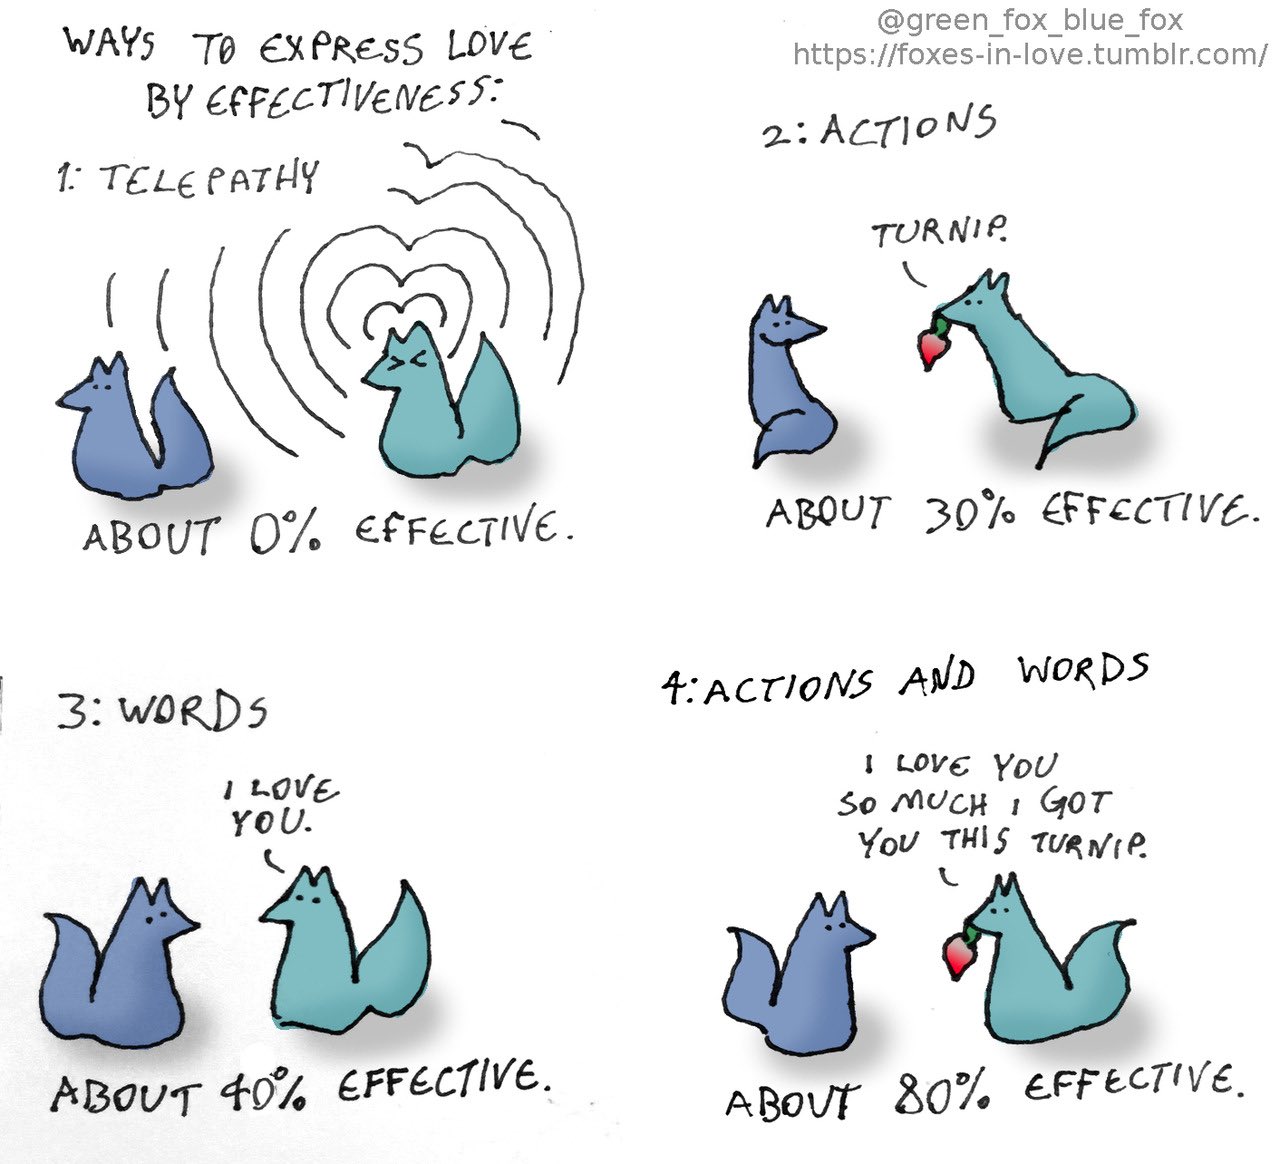 @green_fox_blue_fox
https://foxes-in-love.tumblr.com/
WAYS TO EXPRESS LOVE
BY EFFECTIVENESS:
1: TELEPATHY
ABOUT 0% EFFECTIVE.
2: ACTIONS
TURNIP.
ABOUT 30% EFFECTIVE.
3: WORDS
I LOVE
YOU.
ABOUT 40% EFFECTIVE.
4: ACTIONS AND WORDS
I LOVE YOU
SO MUCH I GOT
YOU THIS TURNIP.
ABOUT 80% EFFECTIVE.